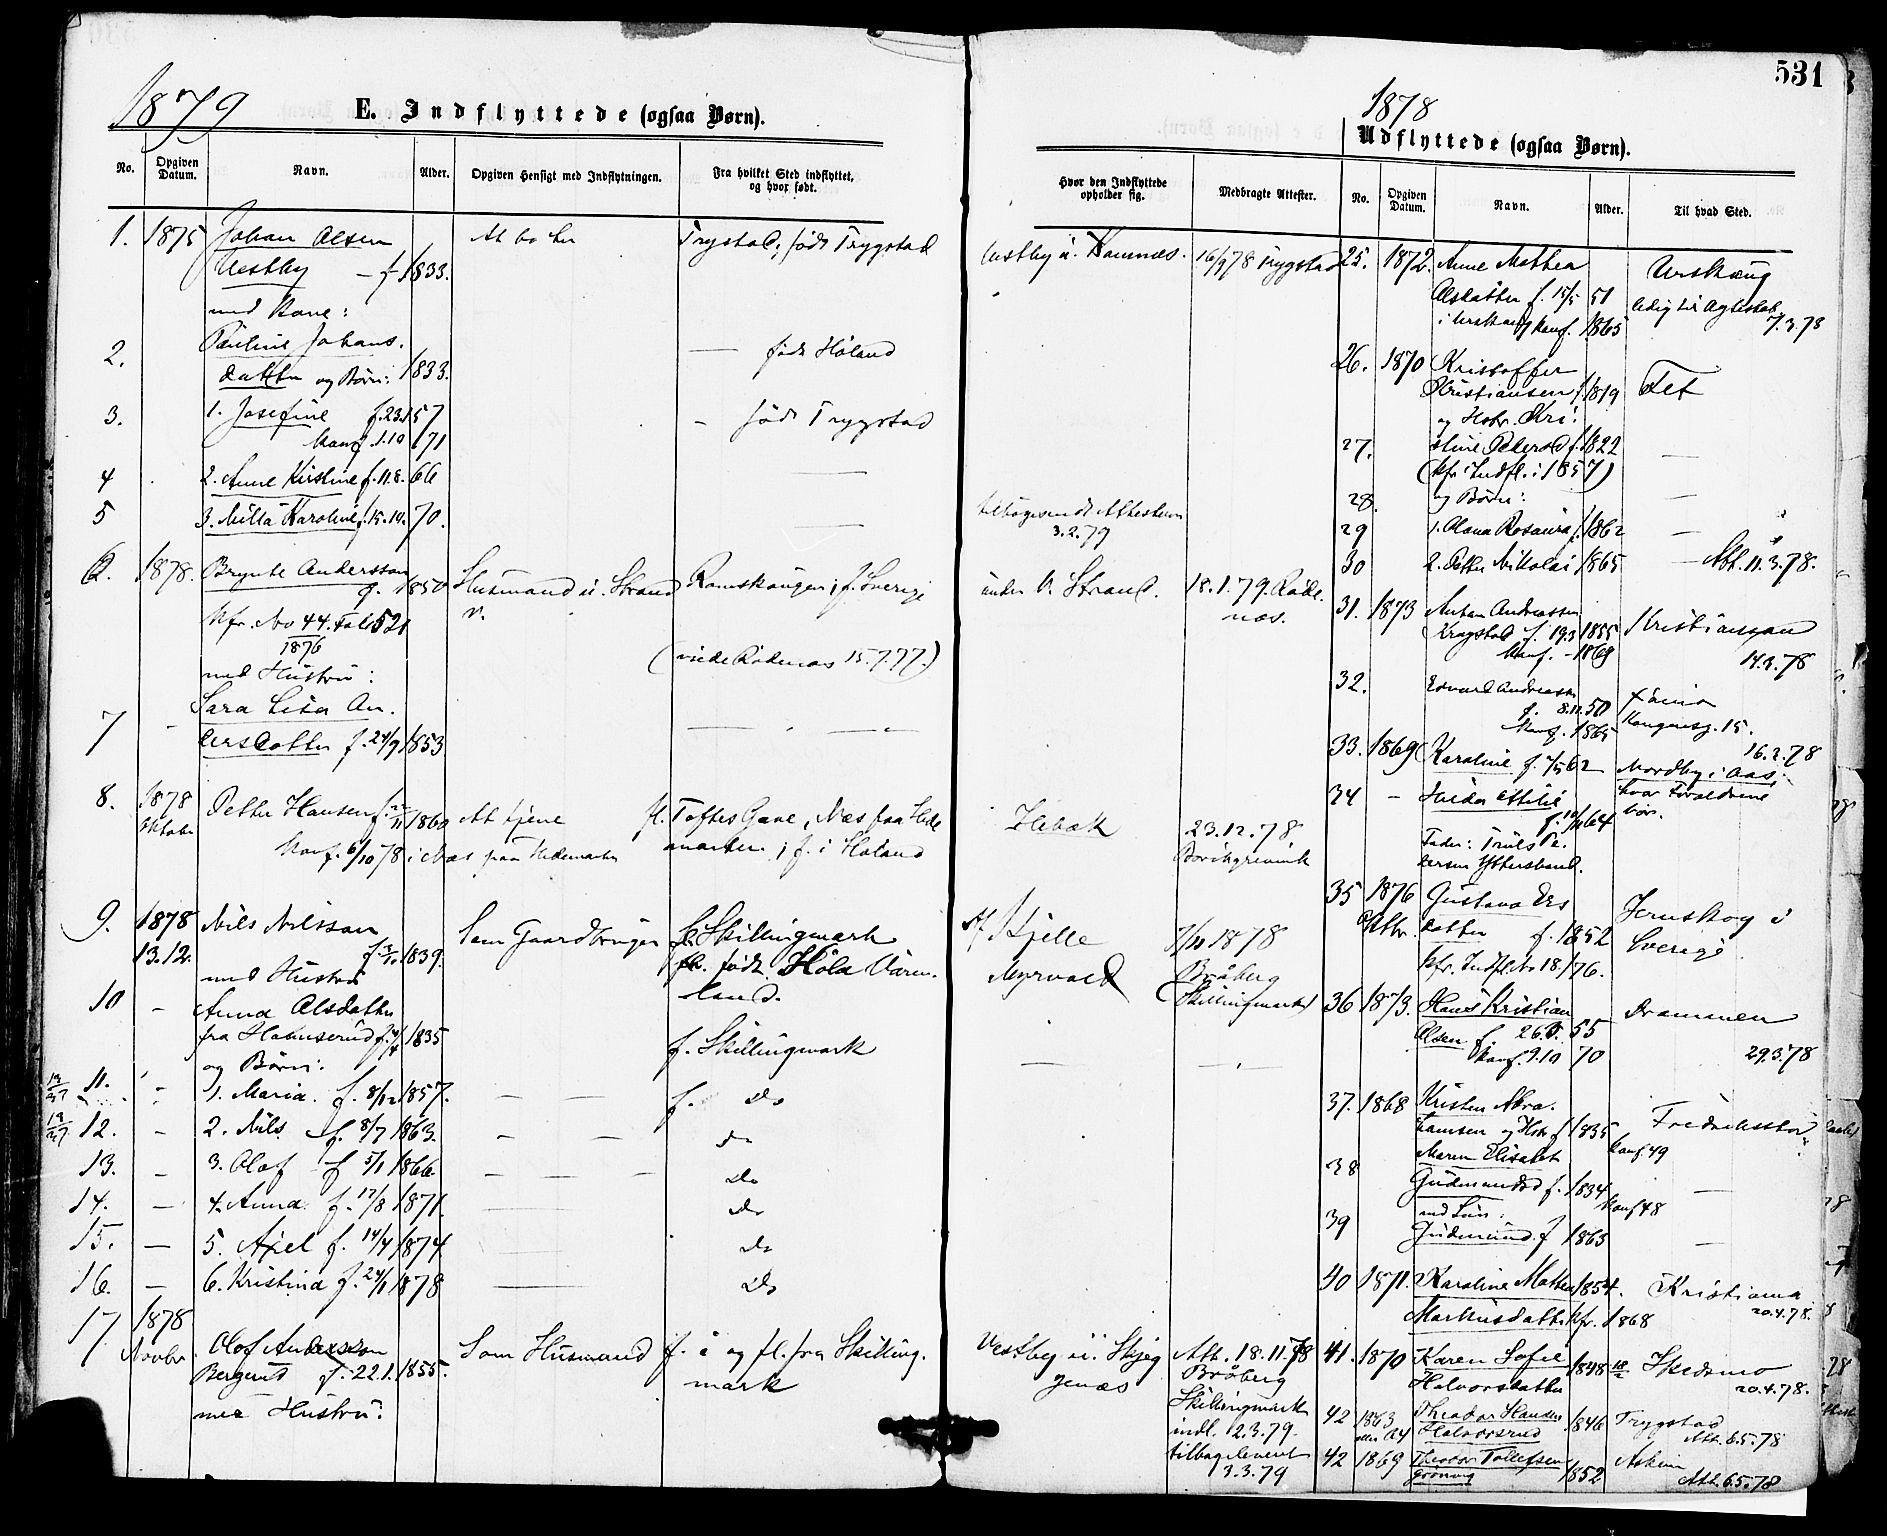 531
1879
E. Indflyttede (ogsaa Børn).
No.
Opgiven Datum.
Navn.
Alder.
Opgiven Hensigt med Indflytningen.
Fra hvilket Sted indflyttet, og hvor født.
1. 1875 Johan Olsen At bo her Trygstad; født Trygstad
Vestby - f. 1833.
med Kone:
2. Pauline Johans. — født Høland
datter og Børn: 1833.
3. 1. Josefine f. 23.1 57 - født Trygstad
Konf. 1.10 71
4 2. Anne Kirstine f. 11.8. 66 —
5 3. Milla Karoline f. 15.10. 70. —
6. 1878. Brynte Andersson Husmand u. Strand Romskougen; f. Sverige
f. 1850 v.
Kfr. No 44. Fol. 521
1876
med Hustru: (viede Rødenæs 15.7.77.)
Sara Lisa An.
7 - dersdatter f. 24/9 1853
8. 1878 Petter Hansen f. 1860 At tjene fl. Toftes Gave, Næs paa Hede
Oktober
Konf. 6/10 78 i Næs paa Hedemarken marken; f. i Høland
9. 1878 Nils Nilsson Som Gaardbruger fl. Skillingmark
13.12. 1839. født. Hola Värm.
med Hustru land.
10 - Anna Olsdatter
fra Hahnserud f. 1835 f. Skillingmark
og Børn:
11. - 1. Maria. f. 8/12 1857. — — f. Do
12. - 2. Nils f. 8/7 1863. — — Do
13. - 3. Olof f. 5/1 1866. — — Do
14. - 4. Anna f. 17/8 1871. — Do
15. - 5. Axel f. 14/4 1874. — Do
16. - 6. Kristina f. 24/1 1878 — Do
17 1878
Novbr. Olof Andersson Som Husmand f. i og fl. fra Skilling.
Bergerud f. 22.1. 1855. mark
med Hustru:
1878
Udflyttede (ogsaa Børn).
Hvor den Indflyttede opholder sig.
Medbragte Attester.
No.
Opgiven Datum.
Navn.
Alder.
Til hvad Sted.
Vestby u. Kamnæs. 16/9 78 Trygstad 25. 1872. Anne Mathea Urskoug
Olsdatter f. 15/5 51 ledig til Ægteskab
i Urskoug Konf. 1865 7.3.78
26. 1870 Kristoffer
Kristiansen f. 1819 Fet
og Hstr. Kri:
27. stine Petersd f. 1822 —
(kfr. Indfl. i 1857)
28. og Børn: —
tilbagesendt Attesten
3.2.79
29 1. Olana Rosaura f. 1862 —
30 2. Petter Nikolai 1865 — Att. 11.3.78.
under V. Strand. 18.1.79. Røde.
næs.
31. 1873 Anton Andreassen
Kragstad f. 19.3 1855 Kristianssand
Konf. - 1869 14.2.78
32. Edvard Andreassen
f. 8.11.50 Kongensg. 15.
Konf. 1865 16.2.78
33. 1869 Karoline f. 62 Nordby i Aas,
34 - Hilda Attilie hvor Forældrene
f. 64 bor.
Fader: Truls Pe.
dersen Ytterstrand.
Helbæk 23.12.78
Borchgrevink
35 1876 Gustava Ers Jernskog i
Oktbr. datter f. 1852 Sverige
kfr. Indfl. No 18./76.
Af Kjelle 7/11 1878
Myrvold Bråberg
(Skillingmark)
36 1873. Hans Kristian Drammen
Olsen f. 26.5. 55
Konf. 9.10 70 29.3.78
37. 1868 Kristen Abra.
hamsen og Hstr f. 1835 Fredriksstad
Konf. 49
38 Maren Elisabet
Gudmundsd f. 1834 —
Konf 48
med Søn:
39 Gudmund. f 1865 —
40 1871. Karoline Mathea 1854. Kristiania
Markusdatter kfr. 1868 20.4.78.
Vestby u. Skjeg Att. 18.11.78 41. 1870 Karen Sofie 1848 Skedsmo
genæs Bråberg Halvorsdatter 20.4.78.
Skillingmark 42 1863 Theodor Hansen 1846 Trygstad
indl. 2.3.79. eller 64 Halvorsrud Att. 6.5.78
tilbageleveret 42 1869 Theodor Tollefsen 1852 Askim
3.3.79 Grønvog Att. 6.5.78